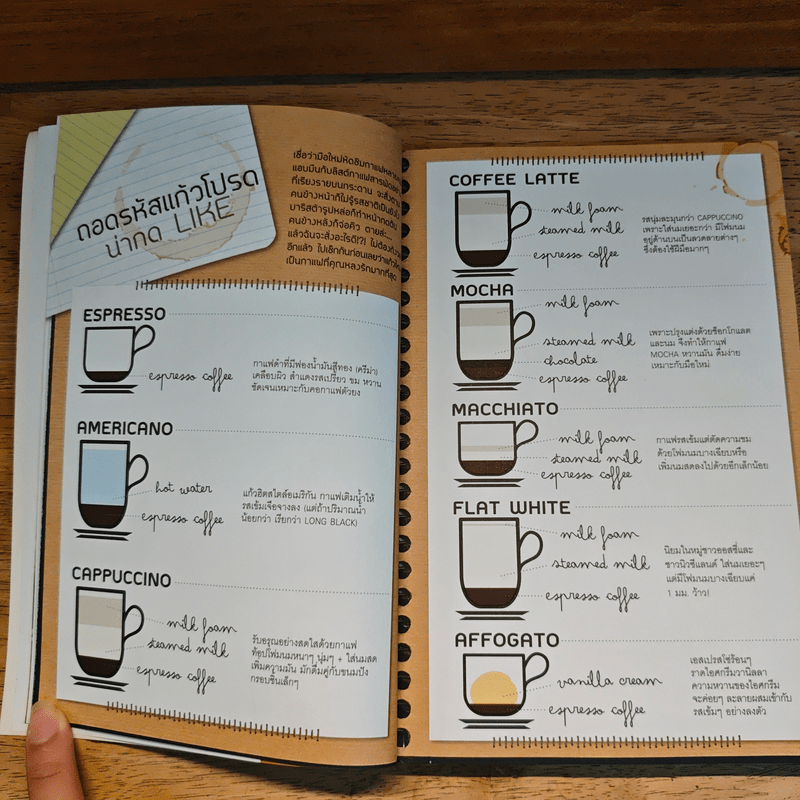 ถอดรหัสแก้วโปรด
น่ากด LIKE
เชื่อว่ามือใหม่หัดชิมกาแฟหลาย
แอบมึนกับลิสต์กาแฟสารพัดอย่าง
ที่เรียงรายบนกระดาน จะสั่งตาม
คนข้างหน้าก็ไม่รู้รสชาติเป็นยังไง
บาริสต้ารูปหล่อก็ทำหน้ากดดัน
คนข้างหลังก็จ่อคิว ตายล่ะ
แล้วฉันจะสั่งอะไรดี!?! ไม่ต้อง
อีกแล้ว ไปเช็กกันก่อนเลยว่าแก้วไหน
เป็นกาแฟที่คุณหลงรักมากที่สุด
ESPRESSO
espresso coffee
กาแฟดำที่มีฟองน้ำมันสีทอง (ครีม่า)
เคลือบผิว สำแดงรสเปรี้ยว ขม หวาน
ชัดเจนเหมาะกับคอกาแฟตัวยง
AMERICANO
hot water
espresso coffee
แก้วฮิตสไตล์อเมริกัน กาแฟเติมน้ำให้
รสเข้มเจือจางลง (แต่ถ้าปริมาณน้ำ
น้อยกว่า เรียกว่า LONG BLACK)
CAPPUCCINO
milk foam
steamed milk
espresso coffee
รับอรุณอย่างสดใสด้วยกาแฟ
ท้อปโฟมนมหนาๆ นุ่มๆ + ใส่นมสด
เพิ่มความมัน มักดื่มคู่กับขนมปัง
กรอบชิ้นเล็กๆ
COFFEE LATTE
milk foam
steamed milk
espresso coffee
รสนุ่มละมุนกว่า CAPPUCCINO
เพราะใส่นมเยอะกว่า มีโฟมนม
อยู่ด้านบนเป็นลวดลายต่างๆ
ซึ่งต้องใช้ฝีมือมากๆ
MOCHA
milk foam
steamed milk
chocolate
espresso coffee
เพราะปรุงแต่งด้วยช็อกโกแลต
และนม จึงทำให้กาแฟ
MOCHA หวานมัน ดื่มง่าย
เหมาะกับมือใหม่
MACCHIATO
milk foam
steamed milk
espresso coffee
กาแฟรสเข้มแต่ตัดความขม
ด้วยโฟมนมบางเฉียบหรือ
เพิ่มนมสดลงไปด้วยอีกเล็กน้อย
FLAT WHITE
milk foam
steamed milk
espresso coffee
นิยมในหมู่ชาวออสซี่และ
ชาวนิวซีแลนด์ ใส่นมเยอะๆ
แต่มีโฟมนมบางเฉียบแค่
1 มม. ว้าว!
AFFOGATO
vanilla cream
espresso coffee
เอสเปรสโซ่ร้อนๆ
ราดไอศกรีมวานิลลา
ความหวานของไอศกรีม
จะค่อยๆ ละลายผสมเข้ากับ
รสเข้มๆ อย่างลงตัว